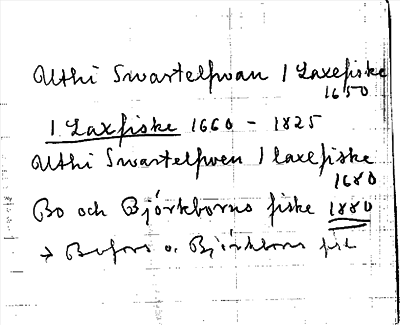 Uthi Swartelfwan 1 Laxefiske
1650
1 Laxfiske 1660 - 1825
Uthi Swartelfwen 1 laxefiske
1680
Bo och Björkborns fiske 1880
→ Bofors o. Björkborns